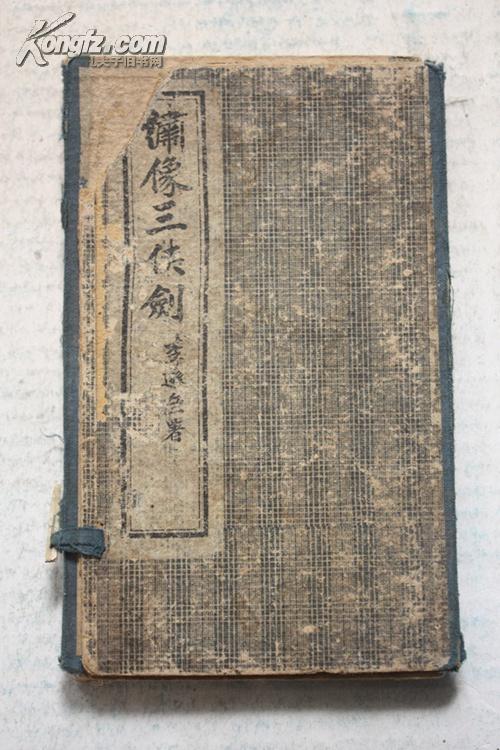 Kongfz.com
孔夫子旧书网
繡像三俠劍
李逊庵署